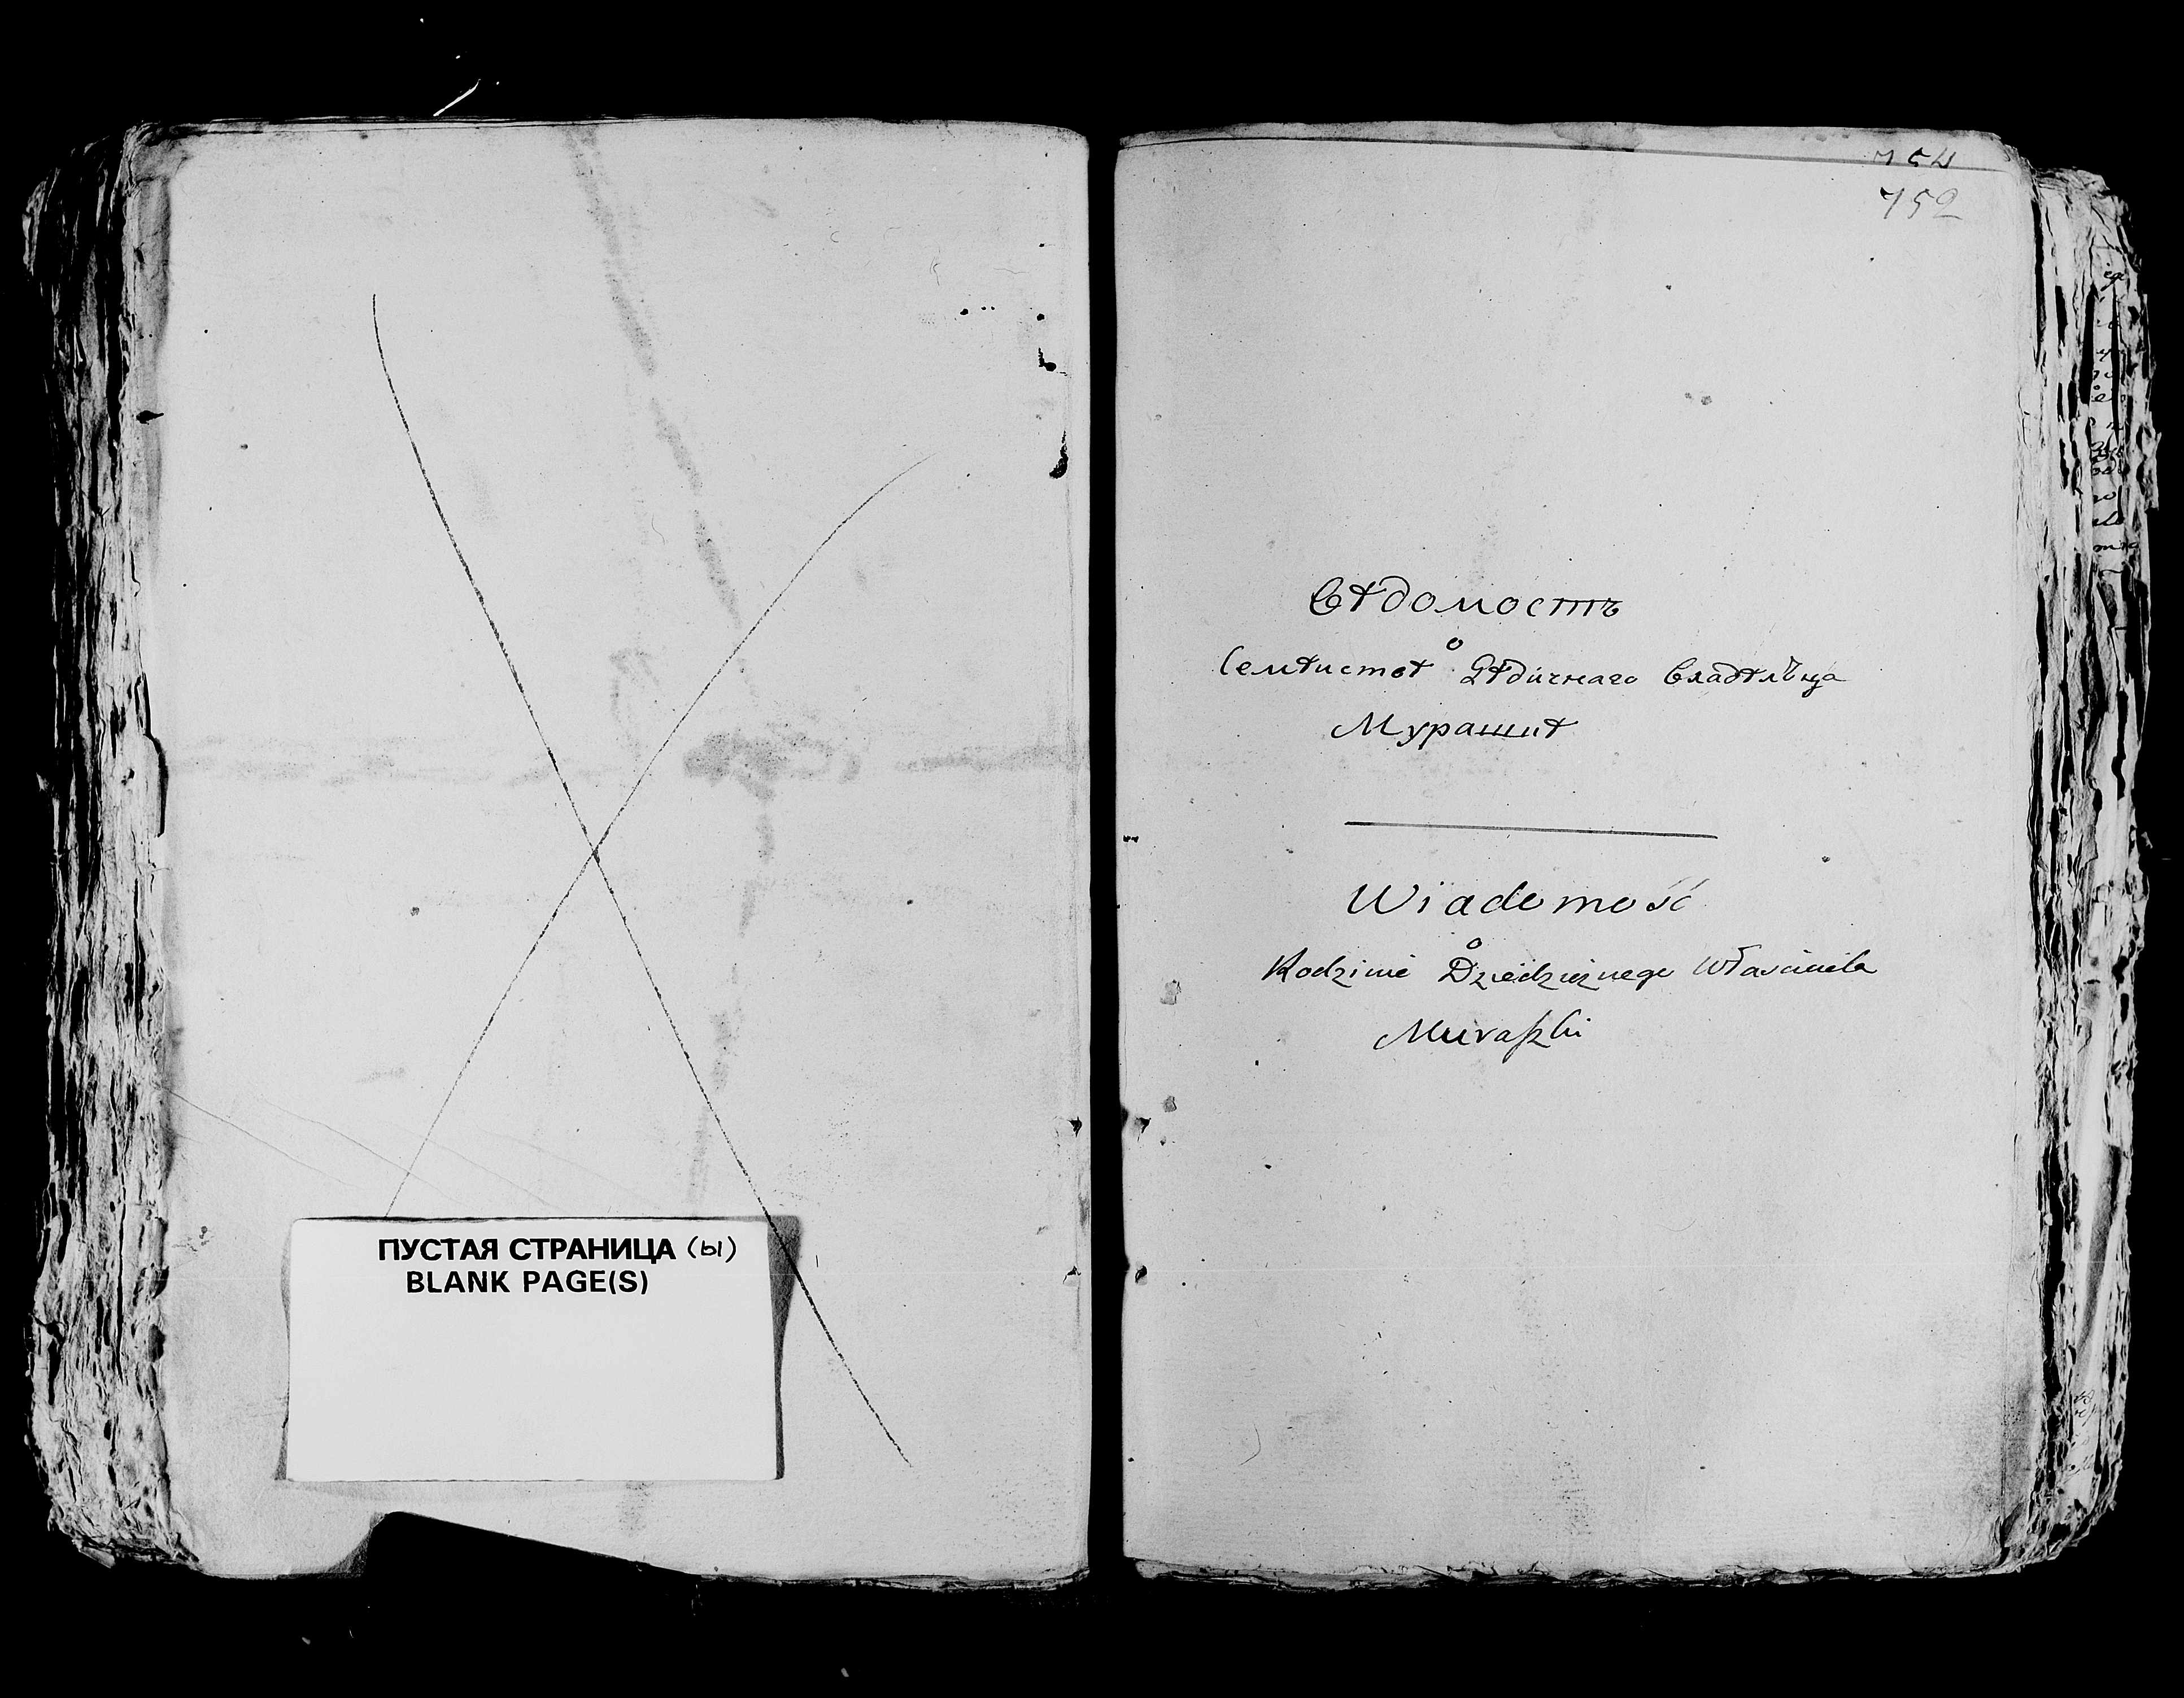 ПУСТАЯ СТРАНИЦА (ы)
BLANK PAGE(S)
754
752
Вѣдомость
о
Семѣиствѣ Дѣдичнаго Владѣльца
Мурашкѣ
Wiadomość
o
Rodzinie Dziedzicznego Własciciela
Muraszki